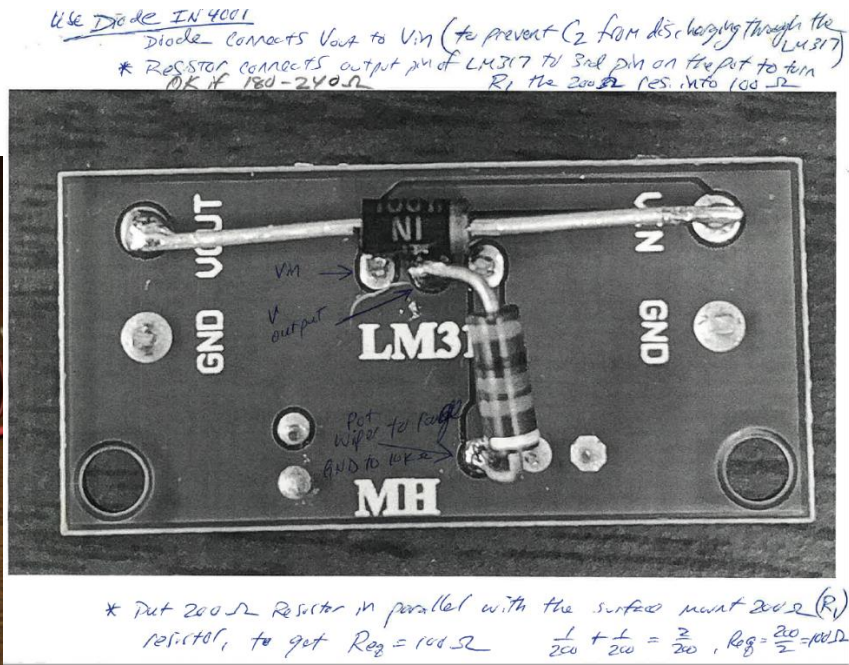 Use Diode IN4001
Diode connects Vout to Vin (to prevent C2 from discharging through the LM317)
* Resistor connects output pin of LM317 to 3rd pin on the pot to turn
OK if 180-240Ω R1 the 200Ω res. into 100Ω
VOUT
VIN
IN
Vin →
V output
GND
GND
LM31
Pot
Wiper to
GND to 10KΩ
MH
* Put 200Ω Resistor in parallel with the surface mount 200Ω (R1)
resistor, to get Req = 100Ω 1/200 + 1/200 = 2/200, Req = 200/2 = 100Ω